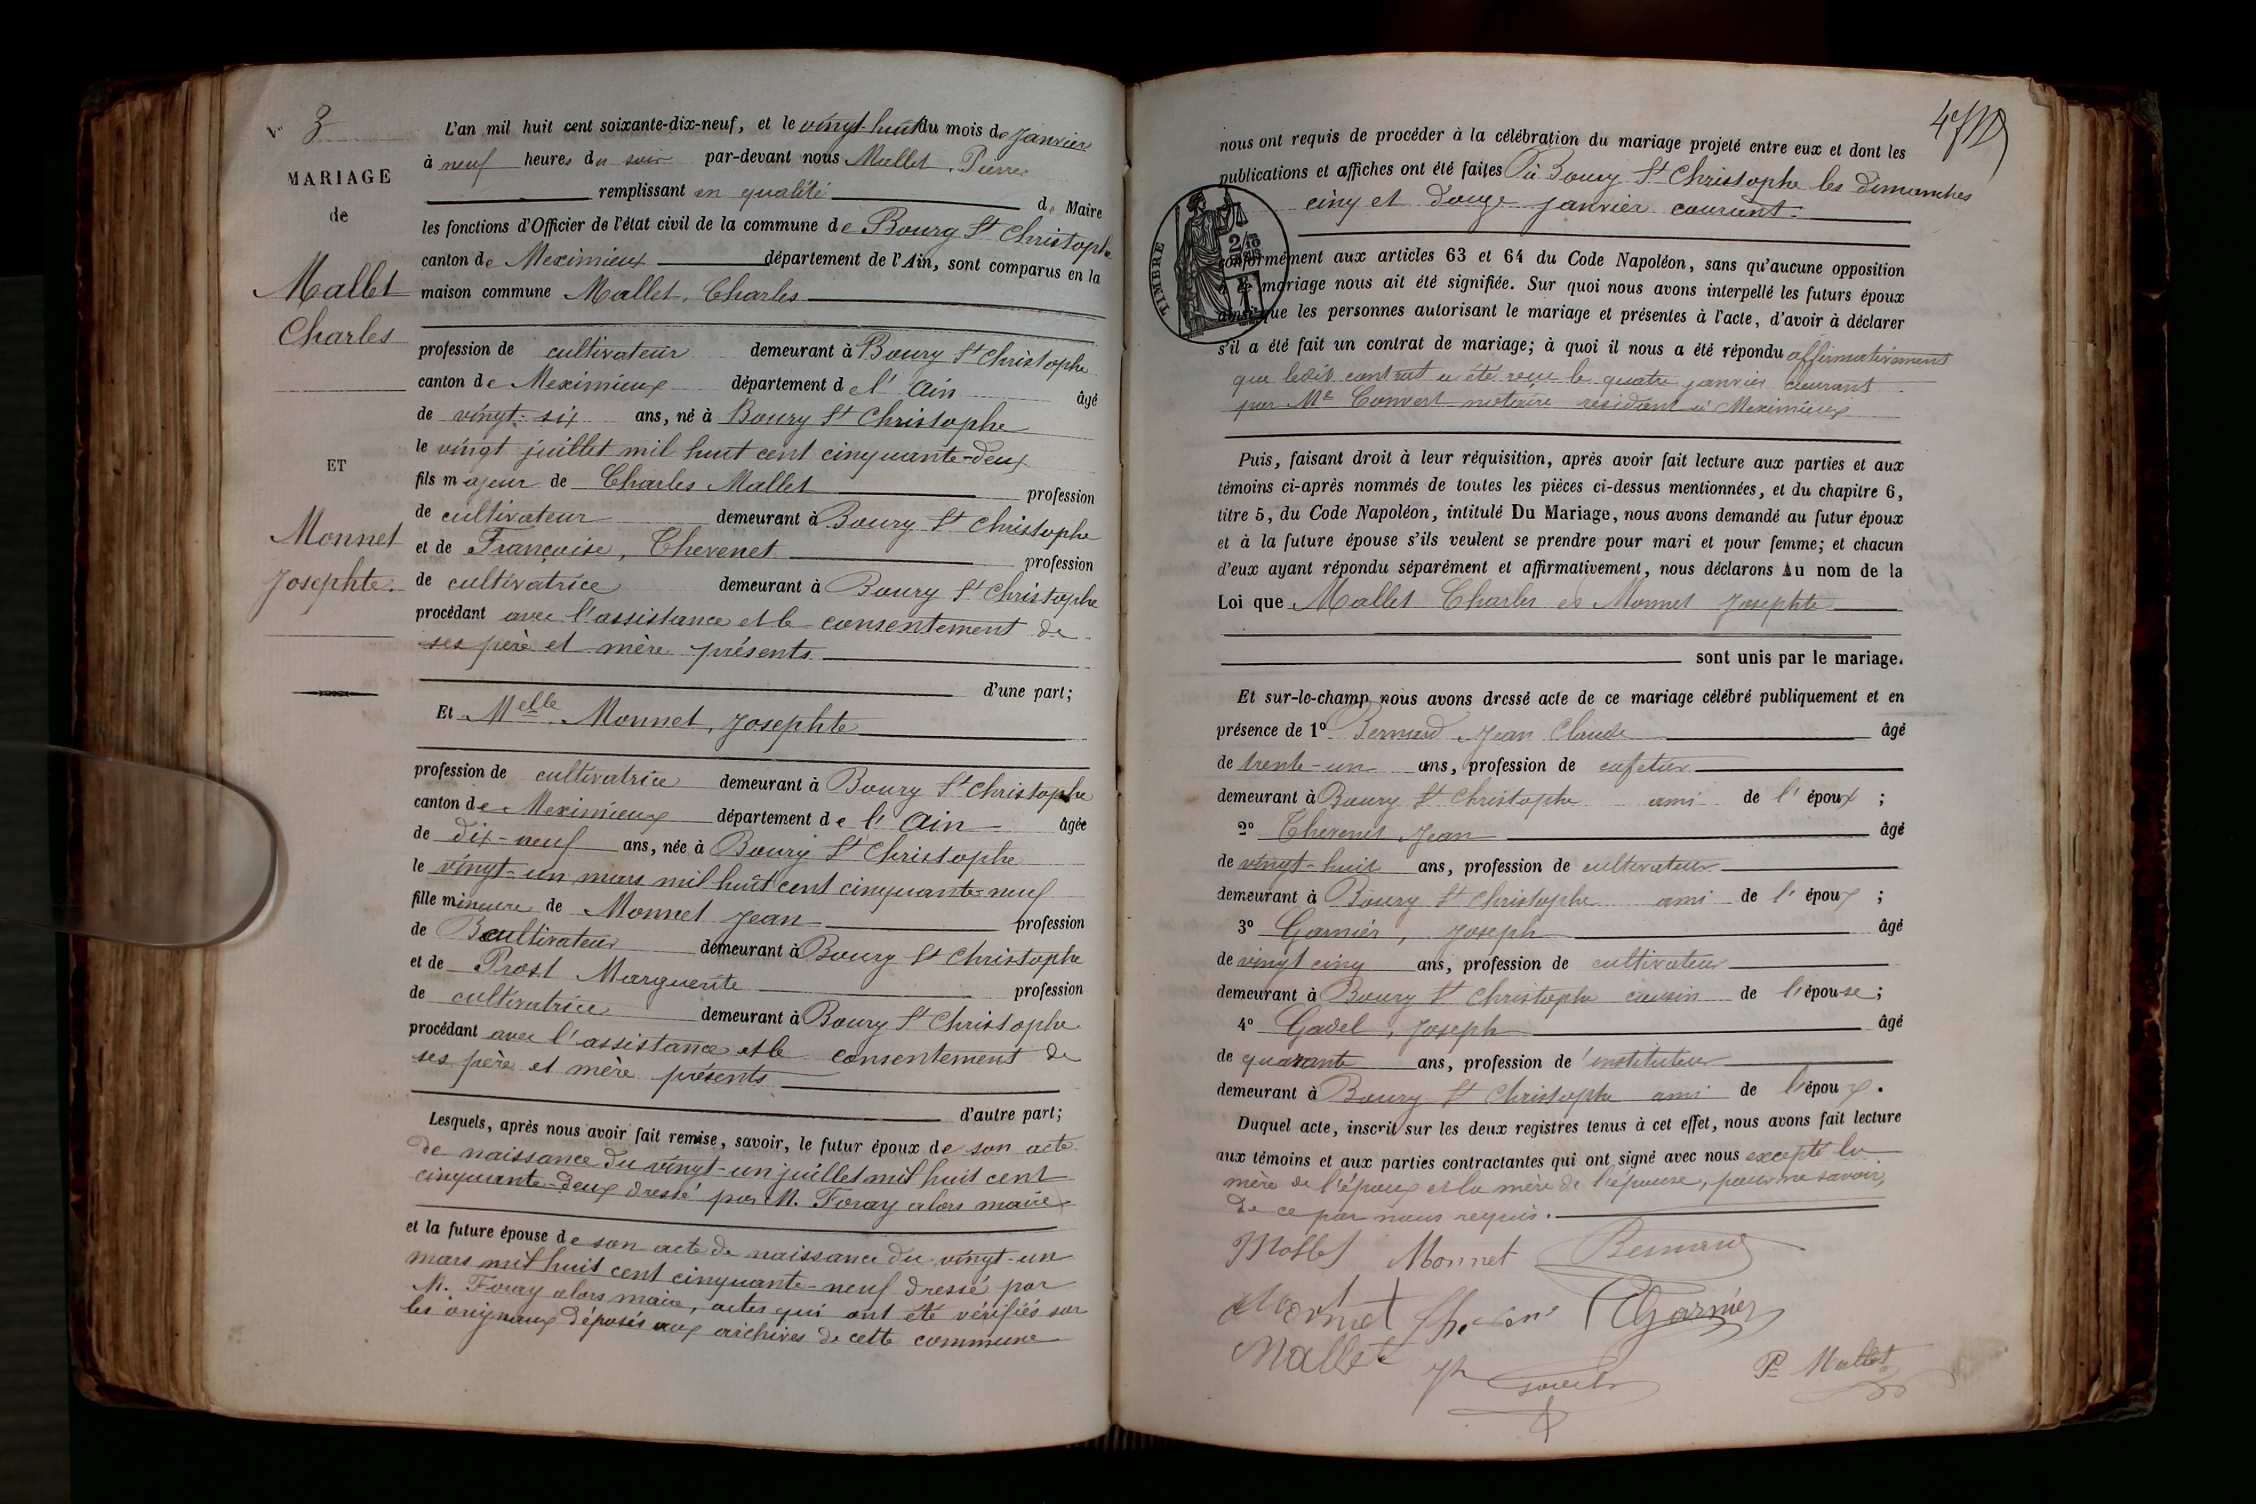 N° 3
MARIAGE
de
Mallet
Charles
ET
Monnet
Josephte.
L'an mil huit cent soixante-dix-neuf, et le vingt-huit du mois de janvier
à neuf heures du soir par-devant nous Mallet, Pierre
remplissant en qualité de Maire
les fonctions d'Officier de l'état civil de la commune de Bourg St Christophe
canton de Meximieux département de l'Ain, sont comparus en la
maison commune Mallet, Charles
profession de cultivateur demeurant à Bourg St Christophe
canton de Meximieux département de l'Ain âgé
de vingt-six ans, né à Bourg St Christophe
le vingt juillet mil huit cent cinquante-deux
fils majeur de Charles Mallet profession
de cultivateur demeurant à Bourg St Christophe
et de Françoise, Thevenet profession
de cultivatrice demeurant à Bourg St Christophe
procédant avec l'assistance et le consentement de
ses père et mère présents
d'une part;
Et Melle Monnet, Josephte
profession de cultivatrice demeurant à Bourg St Christophe
canton de Meximieux département de l'Ain âgée
de dix-neuf ans, née à Bourg St Christophe
le vingt-un mars mil huit cent cinquante-neuf
fille mineure de Monnet Jean profession
de cultivateur demeurant à Bourg St Christophe
et de Prost Marguerite profession
de cultivatrice demeurant à Bourg St Christophe
procédant avec l'assistance et le consentement de
ses père et mère présents
d'autre part;
Lesquels, après nous avoir fait remise, savoir, le futur époux de son acte
de naissance du vingt-un juillet mil huit cent
cinquante-deux dressé par M. Foray alors maire
et la future épouse de son acte de naissance du vingt-un
mars mil huit cent cinquante-neuf dressé par
M. Foray alors maire, actes qui ont été vérifiés sur
les originaux déposés aux archives de cette commune
nous ont requis de procéder à la célébration du mariage projeté entre eux et dont les
publications et affiches ont été faites à Bourg St Christophe les dimanches
cinq et douze janvier courant.
TIMBRE
conformément aux articles 63 et 64 du Code Napoléon, sans qu'aucune opposition
à ce mariage nous ait été signifiée. Sur quoi nous avons interpellé les futurs époux
ainsi que les personnes autorisant le mariage et présentes à l'acte, d'avoir à déclarer
s'il a été fait un contrat de mariage; à quoi il nous a été répondu affirmativement
que ledit contrat a été reçu le quatre janvier courant
par Me Convert notaire résidant à Meximieux
Puis, faisant droit à leur réquisition, après avoir fait lecture aux parties et aux
témoins ci-après nommés de toutes les pièces ci-dessus mentionnées, et du chapitre 6,
titre 5, du Code Napoléon, intitulé Du Mariage, nous avons demandé au futur époux
et à la future épouse s'ils veulent se prendre pour mari et pour femme; et chacun
d'eux ayant répondu séparément et affirmativement, nous déclarons Au nom de la
Loi que Mallet Charles et Monnet Josephte
sont unis par le mariage.
Et sur-le-champ nous avons dressé acte de ce mariage célébré publiquement et en
présence de 1° Bernard Jean Claude âgé
de trente-un ans, profession de cafetier
demeurant à Bourg St Christophe ami de l'époux ;
2° Thevenet Jean âgé
de vingt-huit ans, profession de cultivateur
demeurant à Bourg St Christophe ami de l'époux ;
3° Garnier, Joseph âgé
de vingt cinq ans, profession de cultivateur
demeurant à Bourg St Christophe cousin de l'épouse ;
4° Gadel, Joseph âgé
de quarante ans, profession de instituteur
demeurant à Bourg St Christophe ami de l'époux.
Duquel acte, inscrit sur les deux registres tenus à cet effet, nous avons fait lecture
aux témoins et aux parties contractantes qui ont signé avec nous excepté la
mère de l'époux et la mère de l'épouse, pour ne savoir,
de ce par nous requis.
Mallet Monnet Bernard
Monnet Garnier
Mallet
Pre Mallet